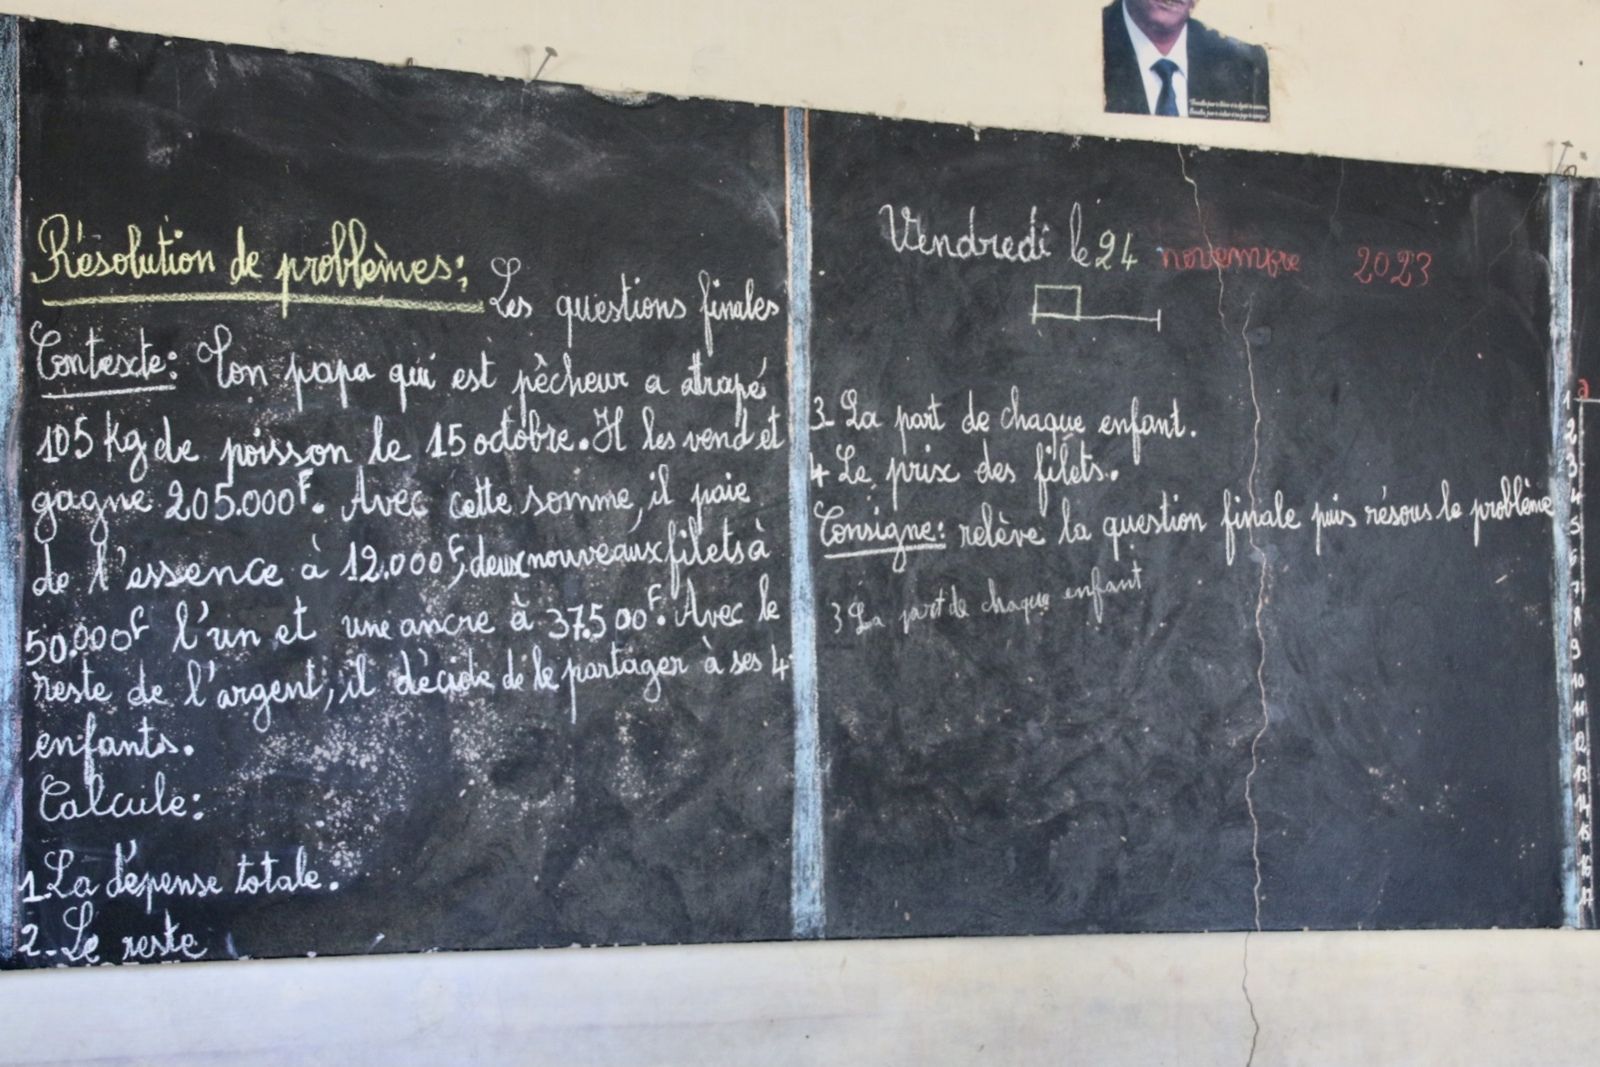 Résolution de problèmes: Les questions finales
Contexte: Ton papa qui est pêcheur a attrapé
105 kg de poisson le 15 octobre. Il les vend et
gagne 205.000F. Avec cette somme, il paie
de l'essence à 12.000F, deux nouveaux filets à
50.000F l'un et une ancre à 37.500F. Avec le
reste de l'argent, il décide de le partager à ses 4
enfants.
Calcule:
1. La dépense totale.
2. Le reste
Vendredi le 24 novembre 2023
3. La part de chaque enfant.
4 Le prix des filets.
Consigne: relève la question finale puis résous le problème
3 La part de chaque enfant
a
1
2
3
4
5
6
7
8
9
10
11
12
13
14
15
16
17